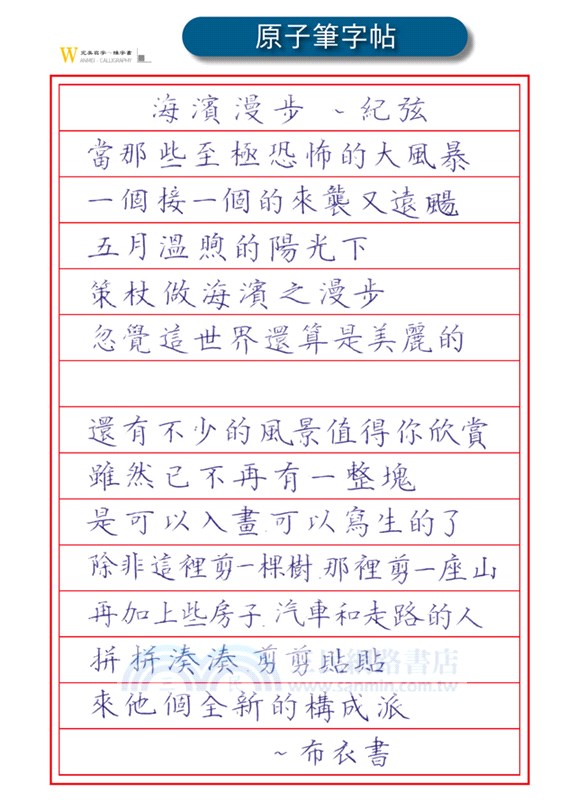 原子筆字帖
W 完美寫字~練字書
WINMEI - CALLIGRAPHY
海濱漫步 ~紀弦
當那些至極恐怖的大風暴
一個接一個的來襲又遠颺
五月溫煦的陽光下
策杖做海濱之漫步
忽覺這世界還算是美麗的
還有不少的風景值得你欣賞
雖然已不再有一整塊
是可以入畫.可以寫生的了
除非這裡剪一棵樹.那裡剪一座山
再加上些房子.汽車和走路的人
拼拼湊湊 剪剪貼貼
來他個全新的構成派
~布衣書
三民網路書店
www.sanmin.com.tw